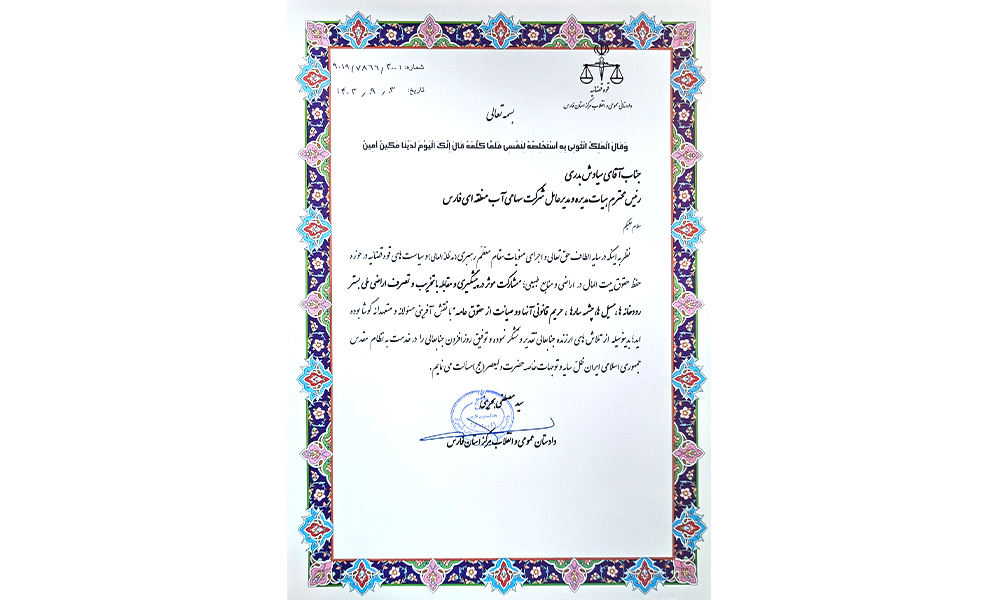 قوه قضائیه
دادستانی عمومی و انقلاب مرکز استان فارس
شماره: ۹۰۱۹/۷۸۶۶/۳۰۰۱
تاریخ: ۱۴۰۳/۹/۳
بسمه تعالی
وَقالَ الْمَلِکُ ائْتُونی بِهِ أَسْتَخْلِصْهُ لِنَفْسی فَلَمَّا کَلَّمَهُ قالَ إِنَّکَ الْیَوْمَ لَدَیْنا مَکینٌ أَمینٌ
جناب آقای سیاوش بدری
رئیس محترم هیات مدیره و مدیرعامل شرکت سهامی آب منطقه ای فارس
سلام علیکم
نظر به اینکه در سایه الطاف حق تعالی و اجرای منویات مقام معظم رهبری (مدظله العالی) و سیاست های قوه قضائیه در حوزه
حفظ حقوق بیت المال در اراضی و منابع طبیعی؛ مشارکت موثر در پیشگیری و مقابله با تخریب و تصرف اراضی ملی بستر
رودخانه ها، مسیل ها، چشمه سارها، حریم قانونی آنها و صیانت از حقوق عامه" با نقش آفرینی مسئولانه و متعهدانه کوشا بوده
اید؛ بدینوسیله از تلاش های ارزنده جنابعالی تقدیر و تشکر نموده و توفیق روز افزون جنابعالی را در خدمت به نظام مقدس
جمهوری اسلامی ایران ظلّ سایه و توجهات خاصه حضرت ولیعصر (عج) مسالت می نمایم.
سید مصطفی بحرینی
دادستان عمومی و انقلاب مرکز استان فارس